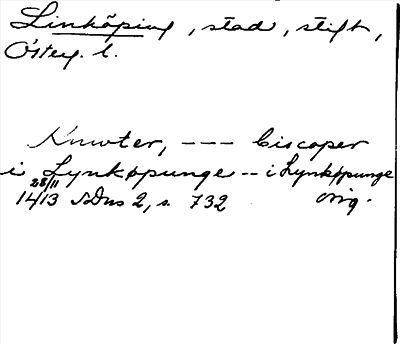 Linköping, stad, stift,
Österg. l.
Knwter, --- biscoper
i Lynkøpunge -- i Lynkøpunge
28/11
1413 SDns 2, s. 732 orig.